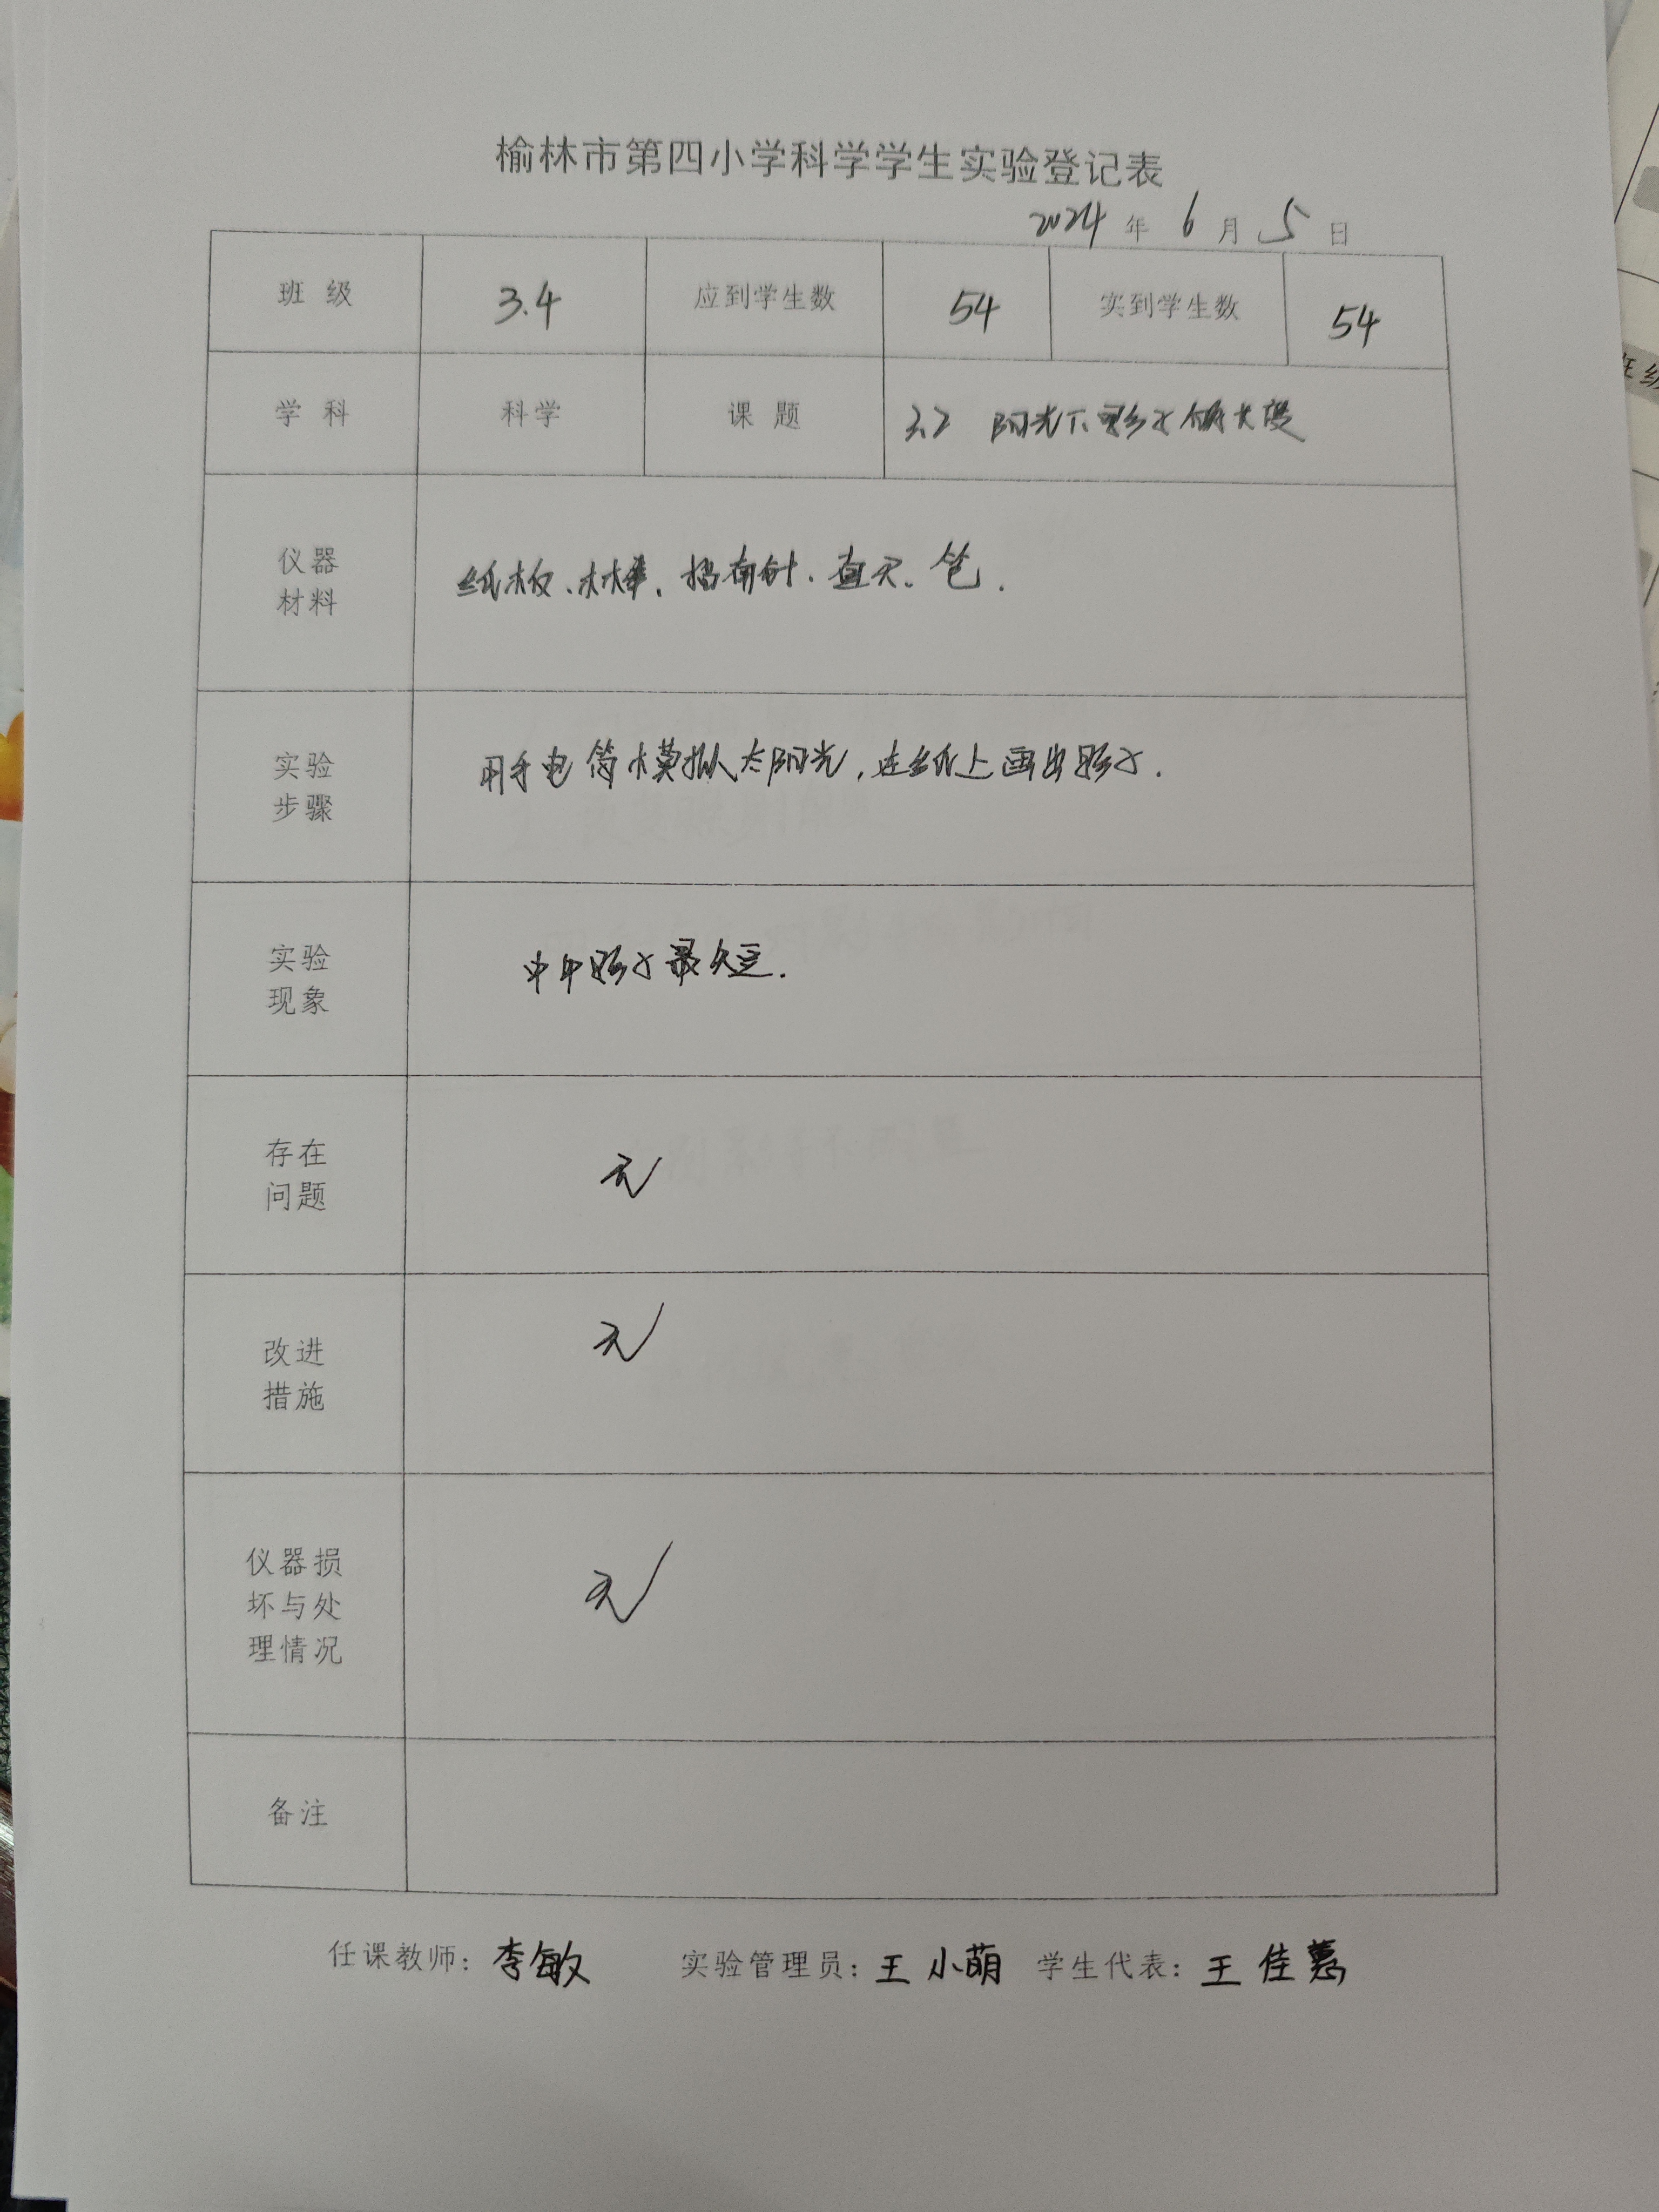 榆林市第四小学科学学生实验登记表
2024 年 6 月 5 日
班 级 3.4 应到学生数 54 实到学生数 54
学 科 科学 课 题 3.2 阳光下 影子
仪器 材料 纸板、木棒、指南针、直尺、笔.
实验 步骤 用手电筒模拟太阳光,在纸上画出影子.
实验 现象 中午影子最短.
存在 问题 无
改进 措施 无
仪器损 坏与处 理情况 无
备注
任课教师: 李敏 实验管理员: 王小萌 学生代表: 王佳蕙